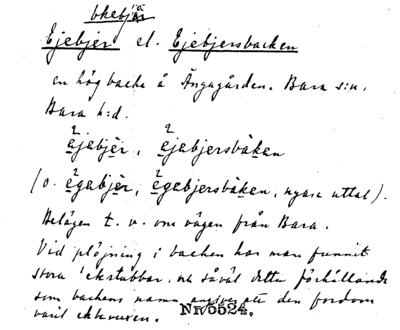 Ekebjär
Ejebjer el. Ejebjersbacken
en hög backe å Ängagården. Bara s:n.
Bara h:d.
ejebjèr, ejebjersbàken
(o. egebjèr, egebjersbàken, nyare uttal).
Belägen t. v. om vägen från Bara.
Vid plöjning i backen har man funnit
stora ekstubbar, och såväl detta förhållande
som backens namn angiver att den fordom
varit ekbevuxen. Nr/5524.